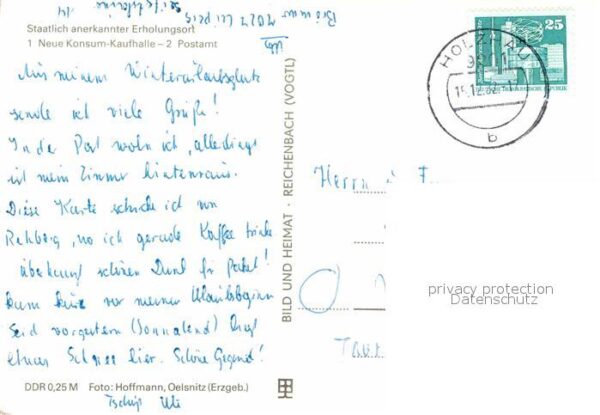 Staatlich anerkannter Erholungsort
1 Neue Konsum-Kaufhalle – 2 Postamt
14
7027 Leipzig
Aus meinem Winterurlaubsplatz
sende ich viele Grüße!
In der Post wohn ich, allerdings
ist mein Zimmer hintenraus.
Diese Karte schicke ich von
Rehberg, wo ich gerade Kaffee trinke
schönen Dank für Paket!
kam kurz vor meiner Urlaubsbeginn
Seid vorgestern (Sonnabend) liegt
etwas Schnee hier. Schöne Gegend!
Tschüß Uli
DDR 0,25 M Foto: Hoffmann, Oelsnitz (Erzgeb.)
BILD UND HEIMAT · REICHENBACH (VOGTL)
HOLZHAU
15.12.82
b
25
Herrn u. F
privacy protection
Datenschutz